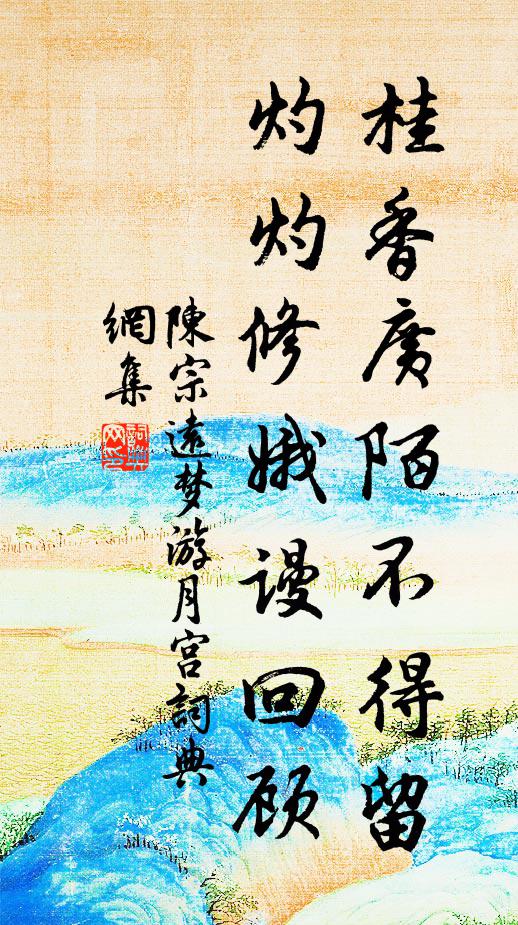 桂香廣陌不得留
灼灼修娥謾回顾
陳宗遠梦游月宫詞典
網集